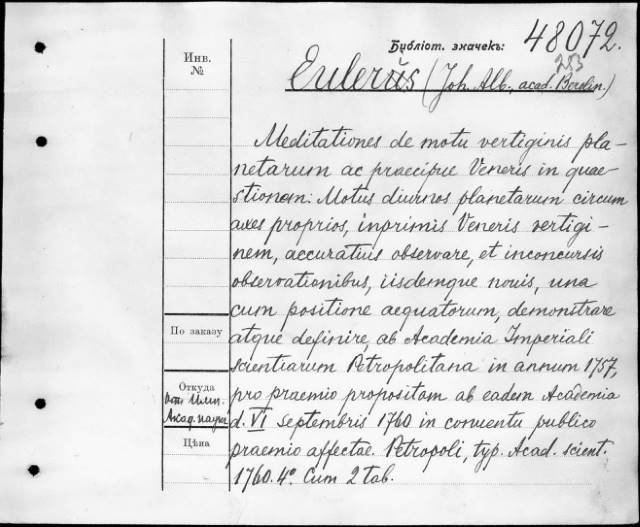 Библіот. значекъ: 48072.
253
Инв.
№
Eulerus (Joh. Alb., acad. Berolin.)
Meditationes de motu vertiginis pla-
netarum ac praecipue Veneris in quae-
stionem: Motus diurnos planetarum circum
axes proprios, inprimis Veneris vertigi-
nem, accuratius observare, et inconcursis
observationibus, iisdemque novis, una
cum positione aequatorum, demonstrare
atque definire, ab Academia Imperiali
scientiarum Petropolitana in annum 1757,
pro praemio propositam ab eadem Academia
d. VI Septembris 1760 in conventu publico
praemio affectae. Petropoli, typ. Acad. scient.
1760. 4º. Cum 2 tab.
По заказу
Откуда
Отъ Имп.
Акад. наукъ
Цѣна